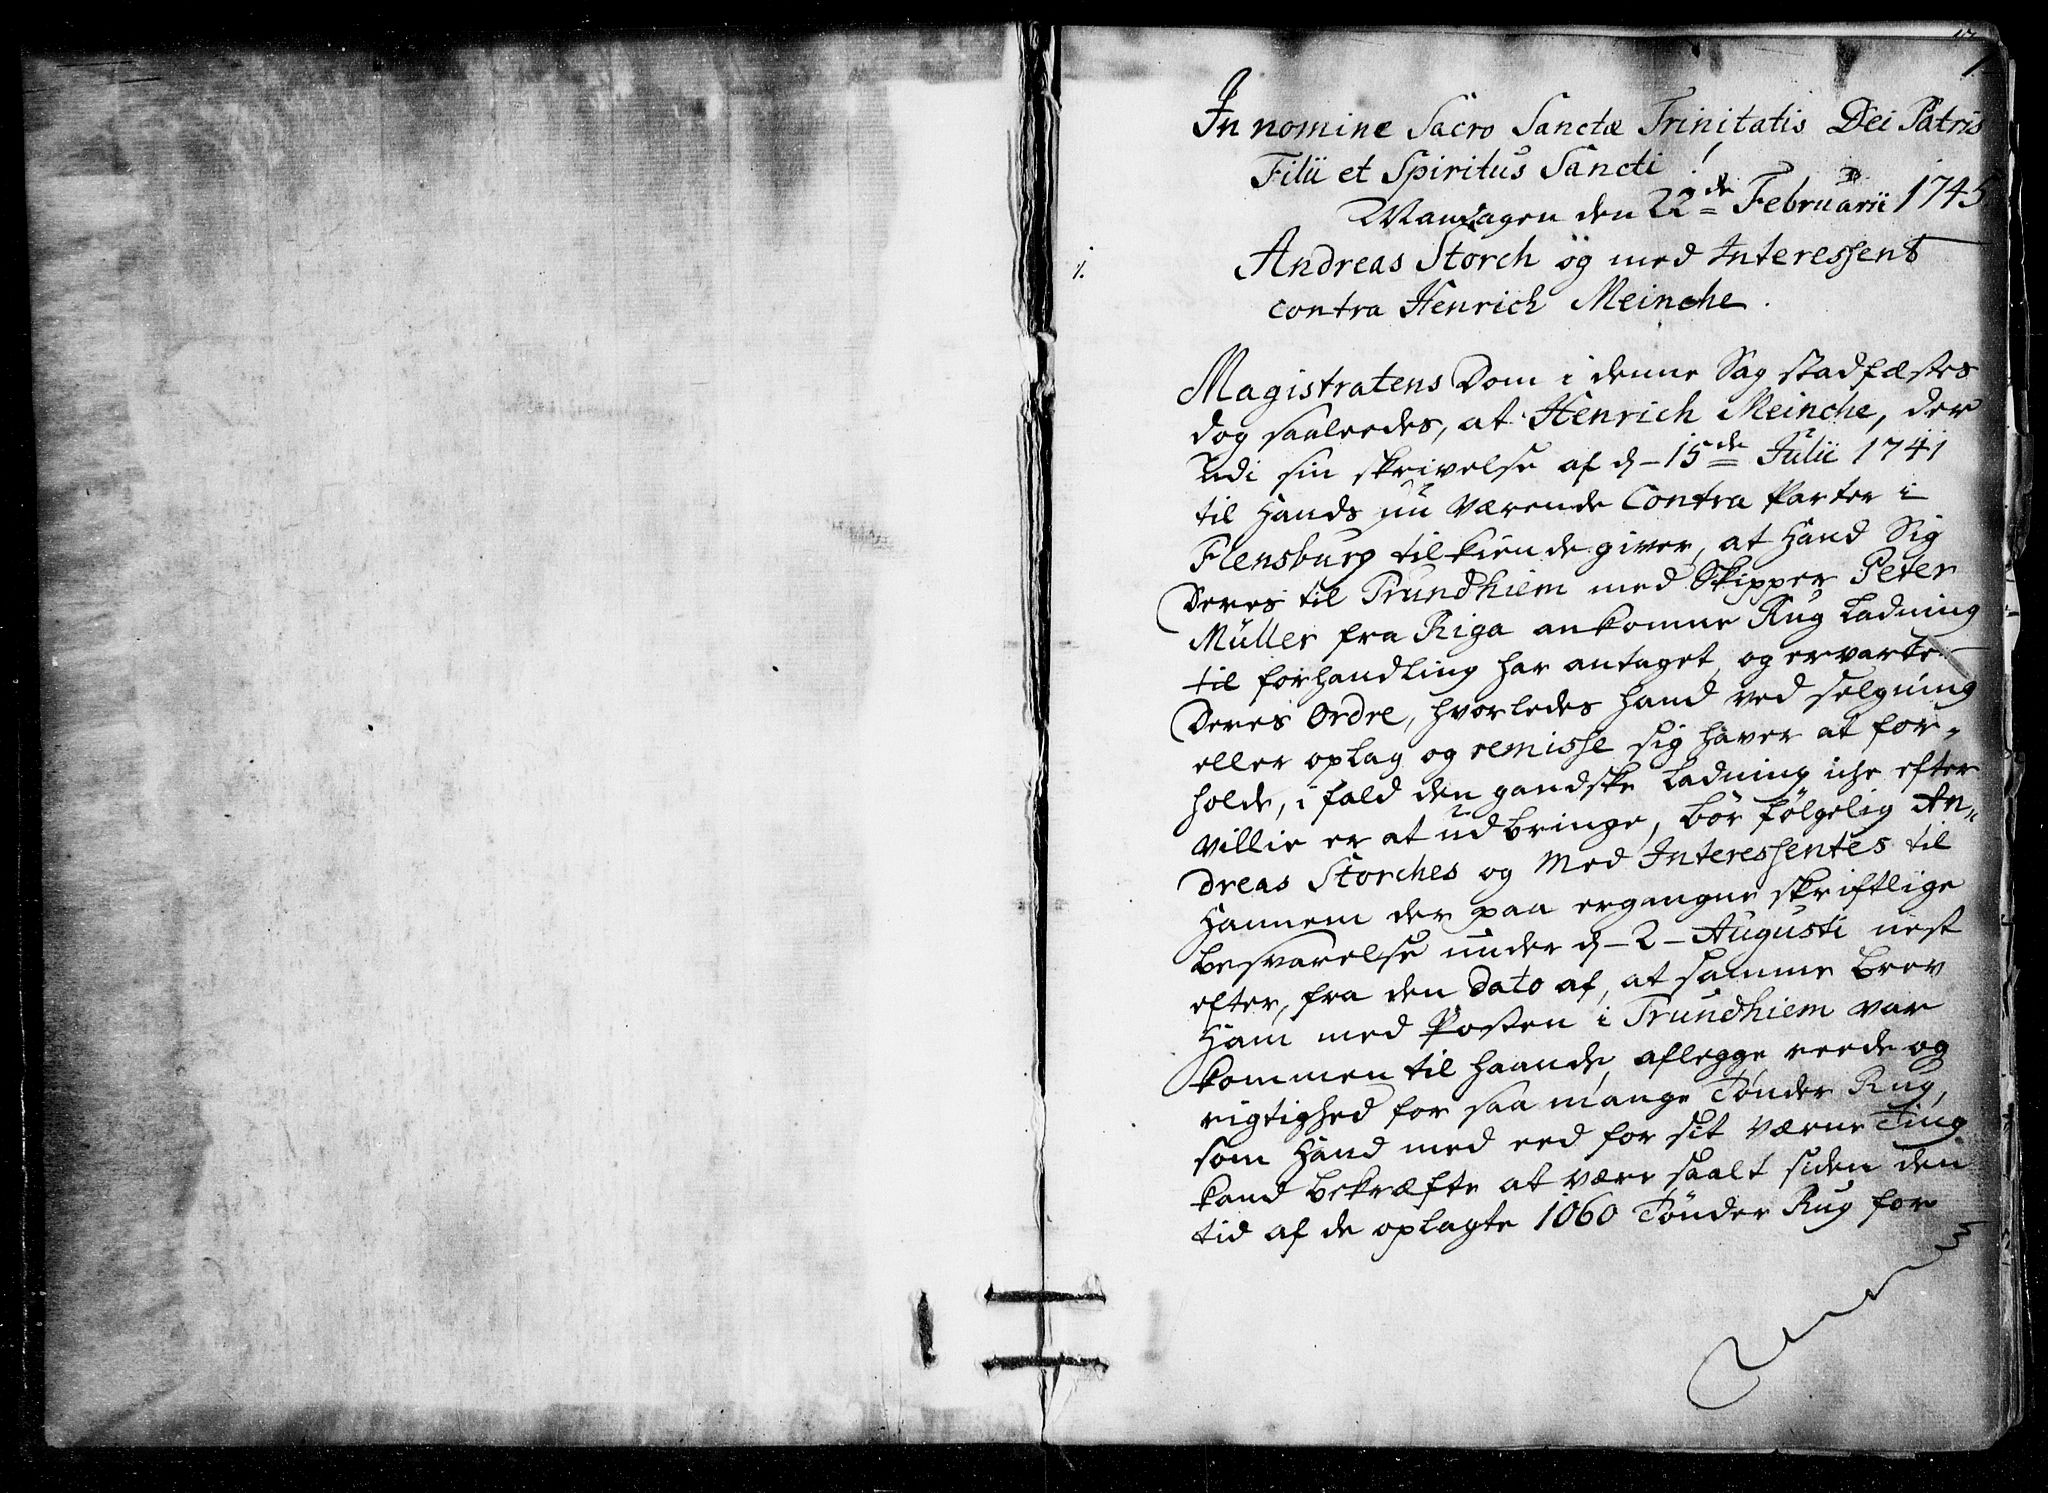 1
In nomine Sacro Sanctæ Trinitatis Dei Patris
Filii et Spiritus Sancti!
Mandagen den 22de Februarii 1745
1.
Andreas Storch og med Interessent
contra Henrich Meincke.
Magistratens Dom i denne Sag stadfæstes
dog saaleedes, at Henrich Meincke, der
udi sin skrivelse af d. 15de Julii 1741
til Hands nu værende Contra Parter i
Flensburg tilkiende giver, at Hand Sig
Deres til Trundhiem med Skipper Peter
Müller fra Riga ankomne Rug Ladning
til forhandling har antaget, og ervarter
Deres Ordre, hvorledes hand ved selgning
eller oplag og remisse sig haver at for-
holde, i fald den gandske Ladning iche efter
villie er at udbringe, bør følgelig An-
dreas Storches og Med Interessentes til
Hannem der paa ergangne skriftlige
besvarelse under d. 2 Augusti nest
efter, fra den Dato af, at samme brev
Ham med Posten i Trundhiem var
kommen til haande, aflegge reede og
rigtighed for saa mange Tønder Rug,
som Hand med eed for sit værne Ting
kand bekræfte at være saalt siden den
tid af de oplagte 1060 Tønder Rug for